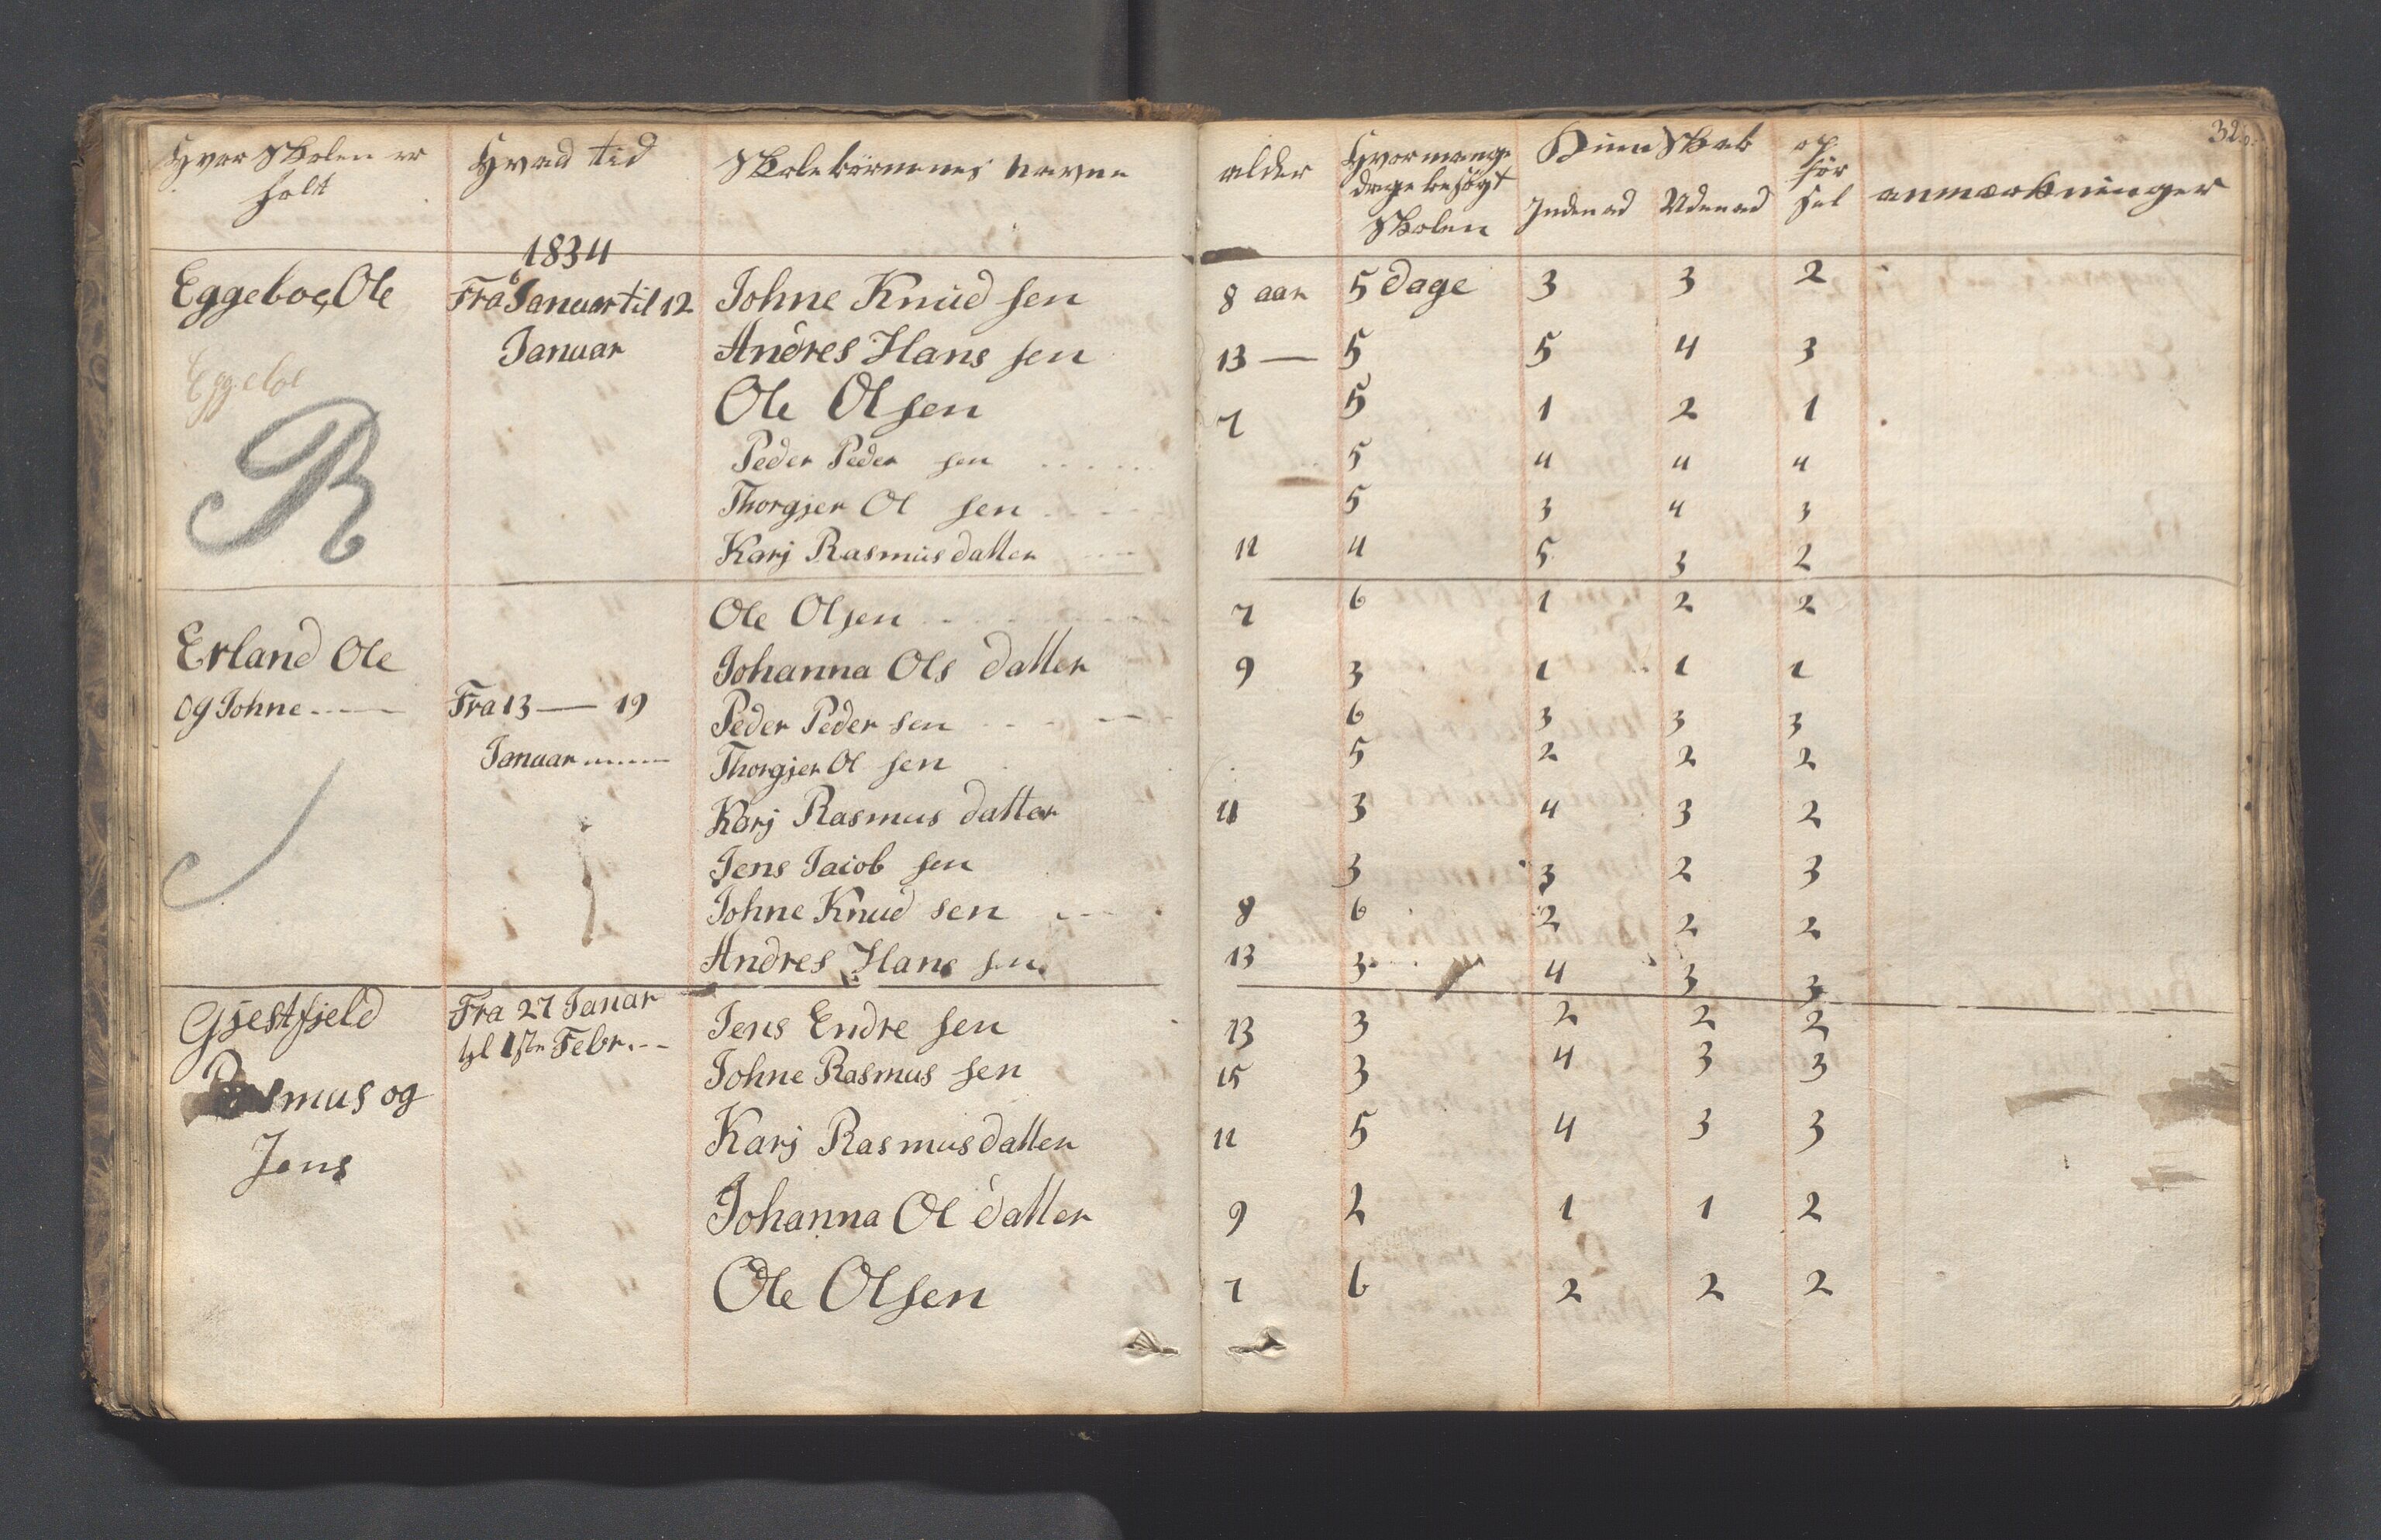 Hvor Skolen er holt | Hvad tid | Skolebörnenes navne | alder | Hvormange dage besögt Skolen | Kundskab Indenad | Udenad | opförsel | anmærkninger
32
1834
Eggeboe, Ole | Fra 6 Januar til 12 | Johne Knud sen | 8 aar | 5 dage | 3 | 3 | 2
Januar | Andres Hans sen | 13 — | 5 | 5 | 4 | 3
Eggeboe | Ole Olsen | 7 | 5 | 1 | 2 | 1
R | Peder Peder sen | 5 | 4 | 4 | 4
Thorgjer Ol sen | 5 | 3 | 4 | 3
Karj Rasmus datter | 11 | 4 | 5 | 3 | 2
Ole Olsen | 7 | 6 | 1 | 2 | 2
Erland Ole | Johanna Ols datter | 9 | 3 | 1 | 1 | 1
og Johne | Fra 13 — 19 | Peder Peder sen | 6 | 3 | 3 | 3
Januar | Thorgjer Ol sen | 5 | 2 | 2 | 2
Karj Rasmus datter | 11 | 3 | 4 | 3 | 2
Jens Jacob sen | 3 | 3 | 2 | 3
Johne Knud sen | 8 | 6 | 2 | 2 | 2
Andres Hans sen | 13 | 3 | 4 | 3 | 3
Gjestfjeld | Fra 27 Janar | Jens Endre sen | 13 | 3 | 2 | 2 | 2
til 1ste Febr. | Johne Rasmus sen | 15 | 3 | 4 | 3 | 3
Rasmus og | Karj Rasmus datter | 11 | 5 | 4 | 3 | 3
Jens | Johanna Ol datter | 9 | 2 | 1 | 1 | 2
Ole Olsen | 7 | 6 | 2 | 2 | 2